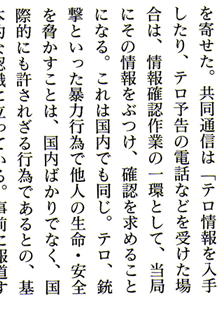 を寄せた。共同通信は「テロ情報を入手
したり、テロ予告の電話などを受けた場
合は、情報確認作業の一環として、当局
にその情報をぶつけ、確認を求めること
になる。これは国内でも同じ。テロ、銃
撃といった暴力行為で他人の生命・安全
を脅かすことは、国内ばかりでなく、国
際的にも許されざる行為であるとの、基
本的な認識に立っている。事前に報道す